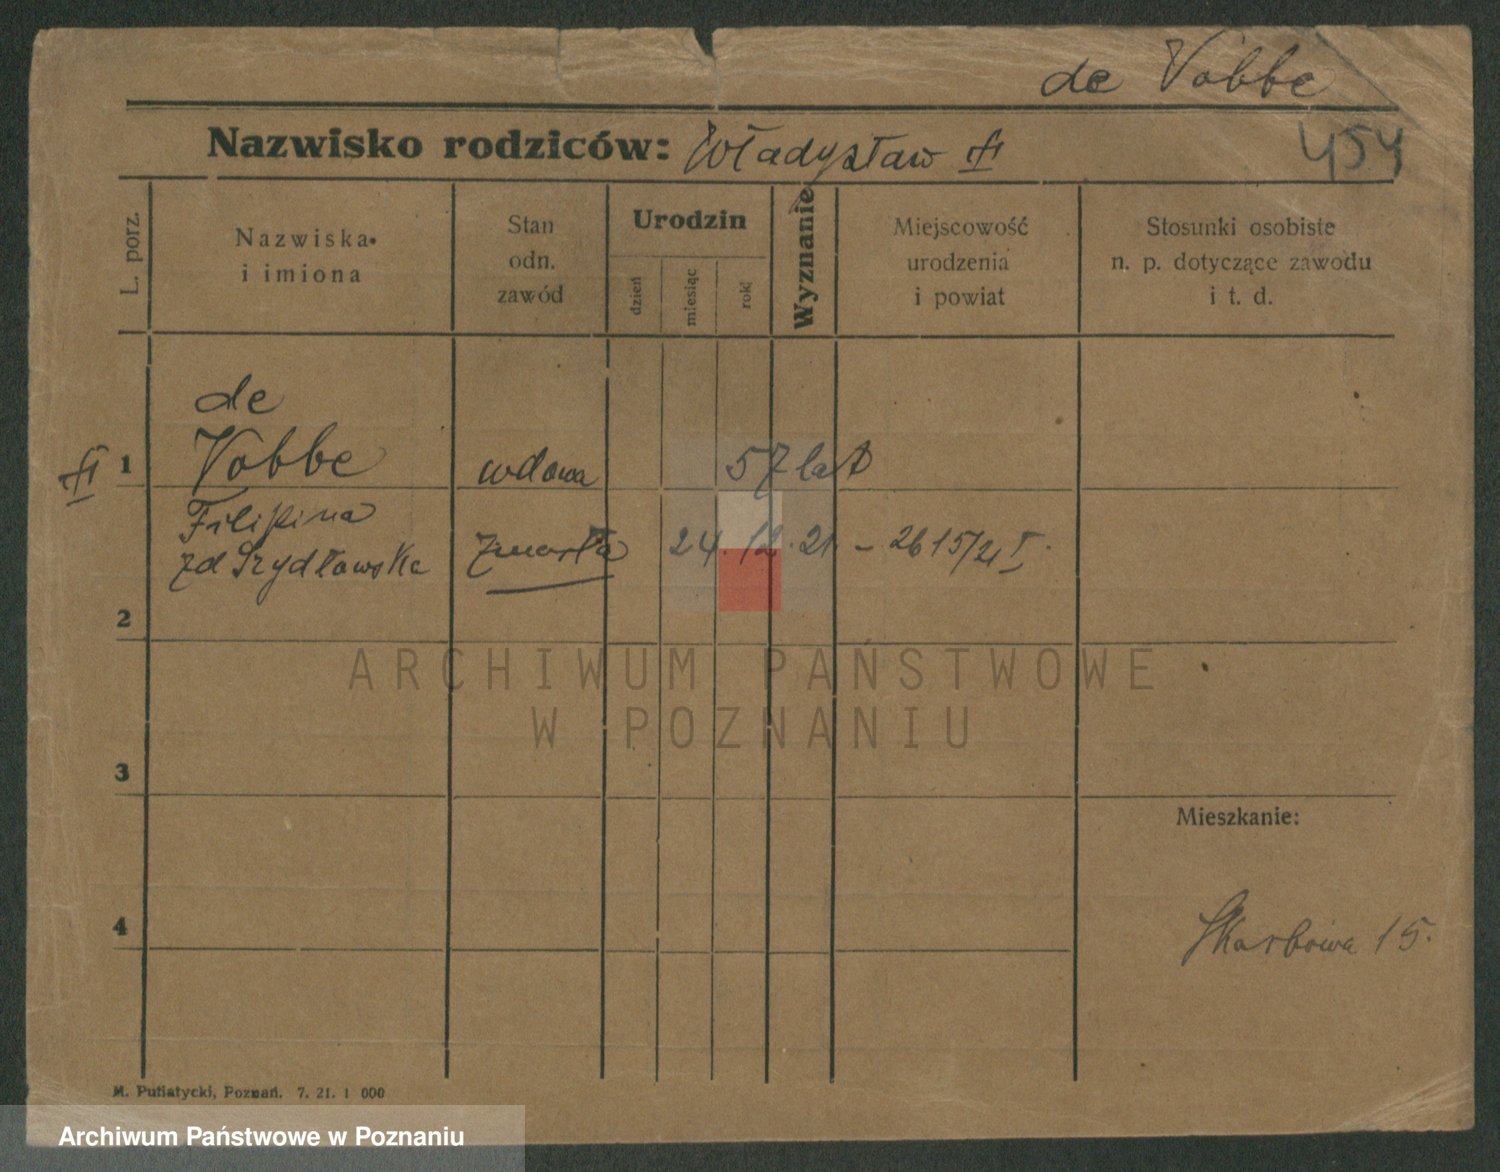 de Vobbe
Nazwisko rodziców: Władysław
454
L. porz.
Nazwiska
i imiona
Stan
odn.
zawód
Urodzin
dzień
miesiąc
rok
Wyznanie
Miejscowość
urodzenia
i powiat
Stosunki osobiste
n. p. dotyczące zawodu
i t. d.
de
1 Vobbe wdowa 57 lat
Filipina
zd Szydłowska zmarła 24.12.21 – 2615/21 I.
2
ARCHIWUM PAŃSTWOWE
W POZNANIU
3
Mieszkanie:
4
Skarbowa 15.
M. Putiatycki, Poznań. 7. 21. 1 000
Archiwum Państwowe w Poznaniu